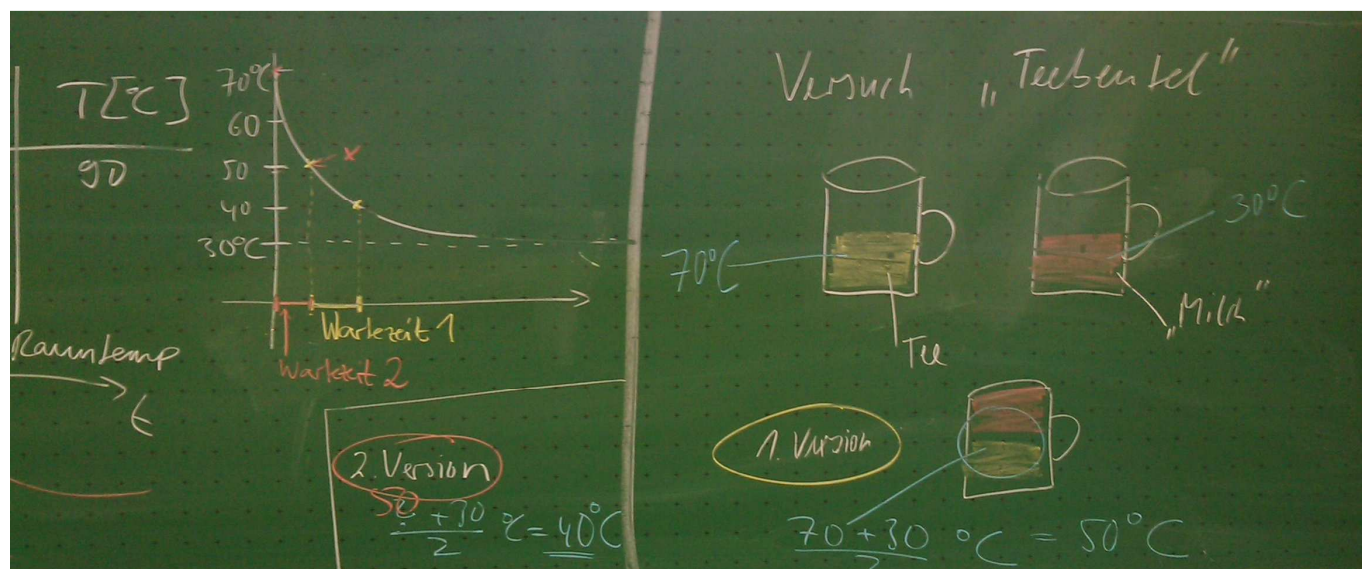 T[°C]
90
Raumtemp
t
70°C
60
50
40
30°C
x
Wartezeit 1
Wartezeit 2
2. Version
50
+30
2
°C = 40°C
Versuch „Teebeutel"
70°C
Tee
30°C
„Milch"
1. Version
70+30
2
°C = 50°C